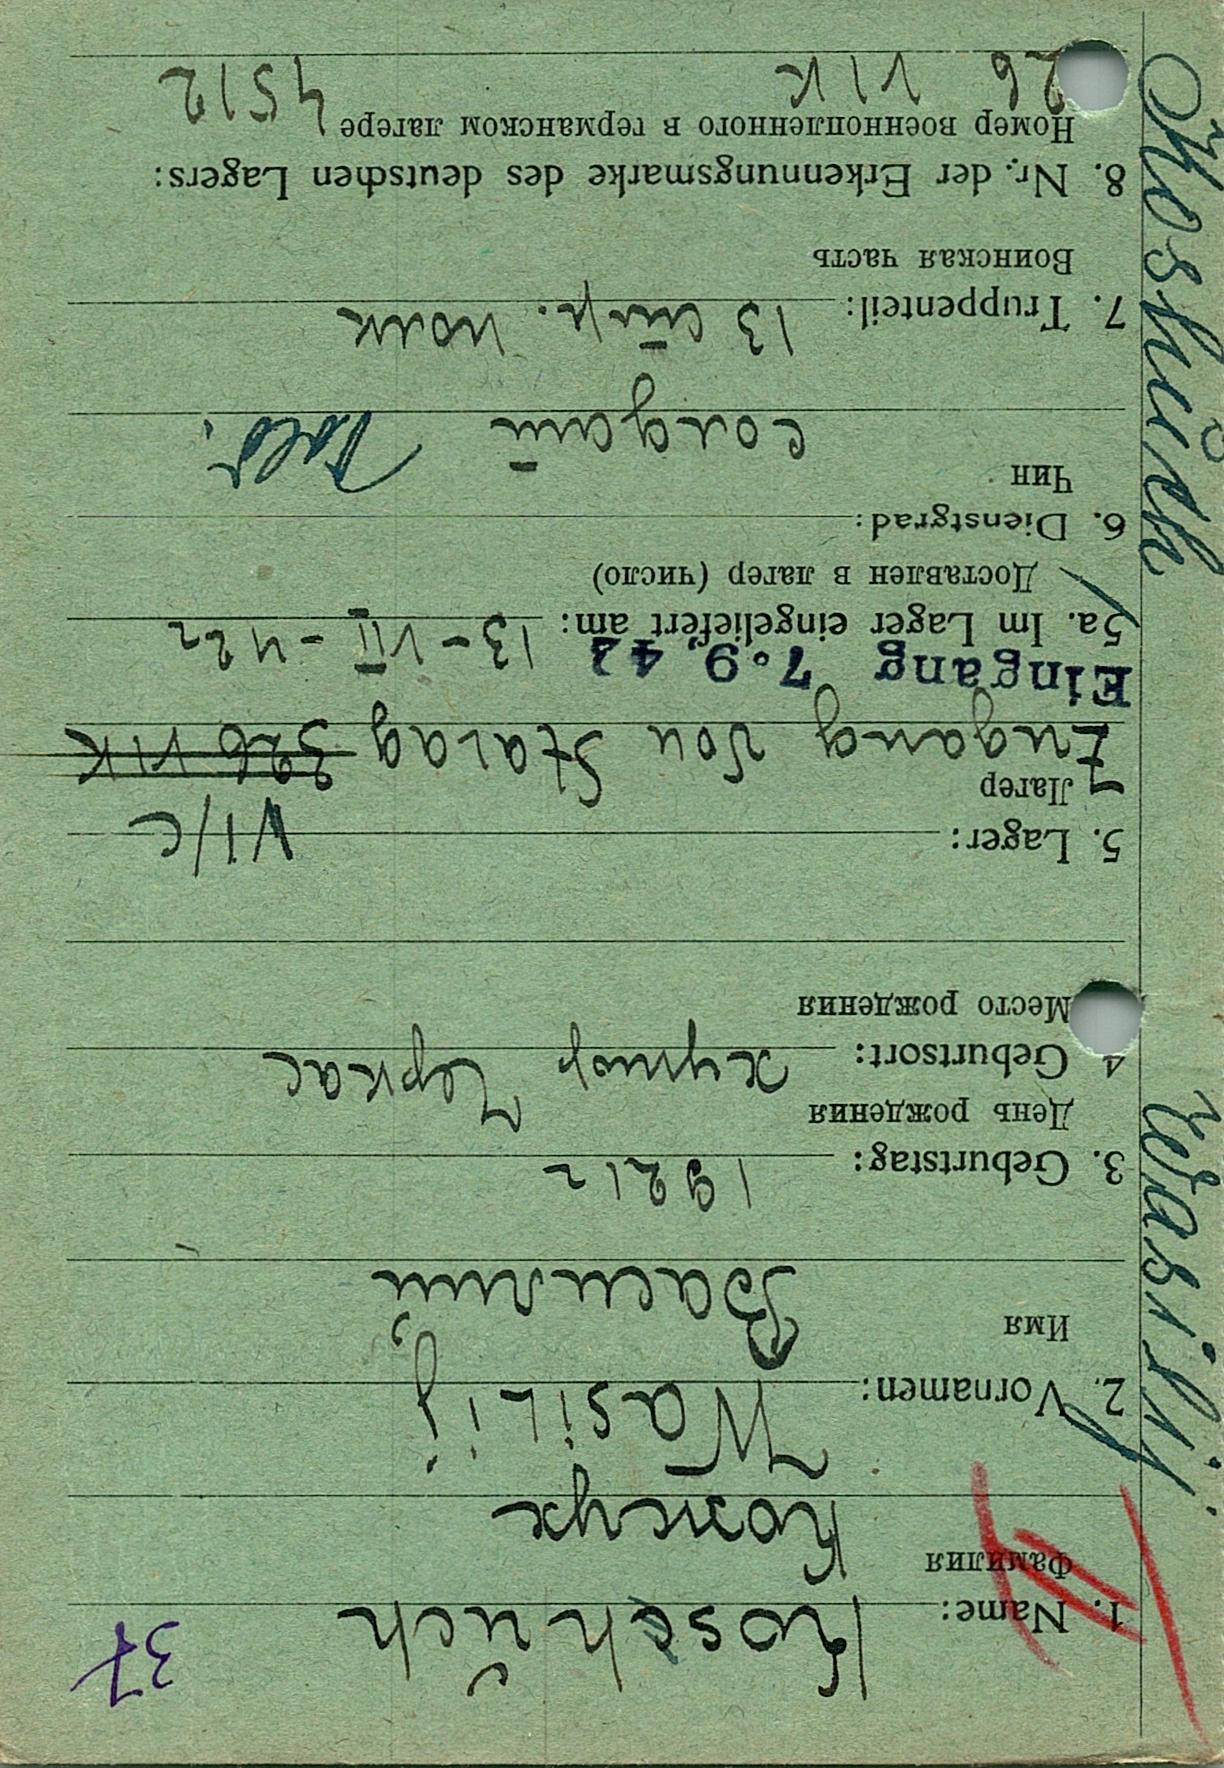 37
1. Name: Koschüch
Фамилия Кожух
2. Vornamen: Wasilij
Имя Василий
3. Geburtstag: 1921 г
День рождения
4 Geburtsort: хутор Черкас
Место рождения
5. Lager: VI/C
Лагер
Zugang von Stalag 326 VIK
Eingang 7.9.43
5a. Im Lager eingeliefert am: 13-VII-42г
Доставлен в лагер (число)
6. Dienstgrad:
Чин
солдат
7. Truppenteil: 13 стр. полк
Воинская часть
8. Nr. der Erkennungsmarke des deutschen Lagers:
Номер военнопленного в германском лагере
26 VIK 4512
Koshüch Wasilij